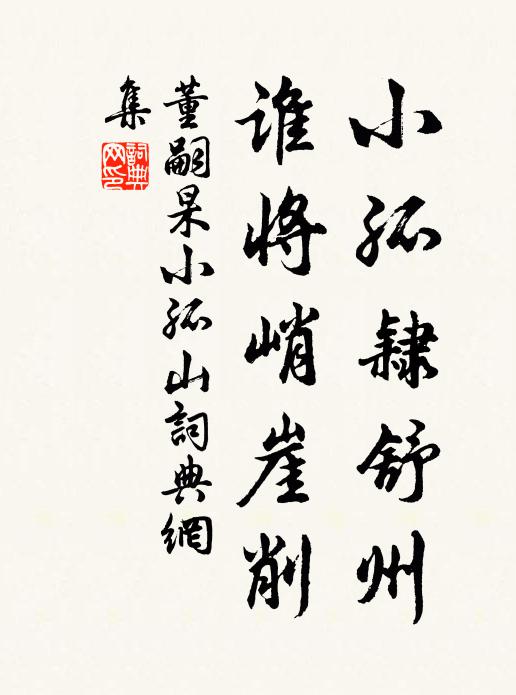 小孤隸舒州
誰將峭崖削
董嗣杲小孤山詞典網
集
詞典網印